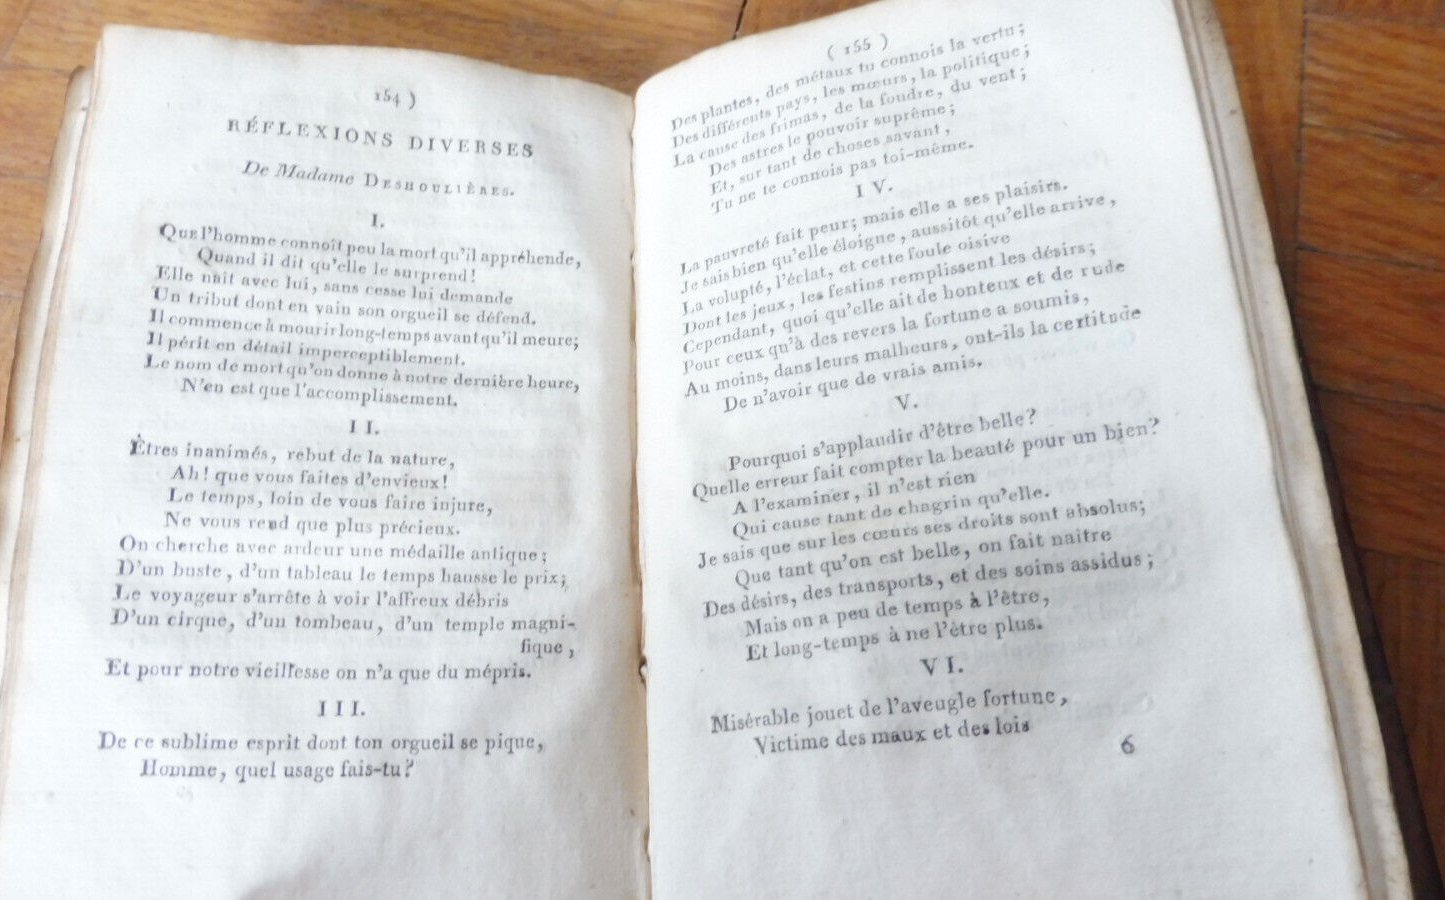 154 )
RÉFLEXIONS DIVERSES
De Madame DESHOULIÈRES.
I.
Que l'homme connoît peu la mort qu'il appréhende,
Quand il dit qu'elle le surprend !
Elle naît avec lui, sans cesse lui demande
Un tribut dont en vain son orgueil se défend.
Il commence à mourir long-temps avant qu'il meure ;
Il périt en détail imperceptiblement.
Le nom de mort qu'on donne à notre dernière heure,
N'en est que l'accomplissement.
II.
Êtres inanimés, rebut de la nature,
Ah ! que vous faites d'envieux !
Le temps, loin de vous faire injure,
Ne vous rend que plus précieux.
On cherche avec ardeur une médaille antique ;
D'un buste, d'un tableau le temps hausse le prix ;
Le voyageur s'arrête à voir l'affreux débris
D'un cirque, d'un tombeau, d'un temple magni-
fique,
Et pour notre vieillesse on n'a que du mépris.
III.
De ce sublime esprit dont ton orgueil se pique,
Homme, quel usage fais-tu ?
( 155 )
Des plantes, des métaux tu connois la vertu ;
Des différents pays, les mœurs, la politique ;
La cause des frimas, de la foudre, du vent ;
Des astres le pouvoir suprême ;
Et, sur tant de choses savant,
Tu ne te connois pas toi-même.
IV.
La pauvreté fait peur ; mais elle a ses plaisirs.
Je sais bien qu'elle éloigne, aussitôt qu'elle arrive,
La volupté, l'éclat, et cette foule oisive
Dont les jeux, les festins remplissent les désirs ;
Cependant, quoi qu'elle ait de honteux et de rude
Pour ceux qu'à des revers la fortune a soumis,
Au moins, dans leurs malheurs, ont-ils la certitude
De n'avoir que de vrais amis.
V.
Pourquoi s'applaudir d'être belle ?
Quelle erreur fait compter la beauté pour un bien ?
A l'examiner, il n'est rien
Qui cause tant de chagrin qu'elle.
Je sais que sur les cœurs ses droits sont absolus ;
Que tant qu'on est belle, on fait naître
Des désirs, des transports, et des soins assidus ;
Mais on a peu de temps à l'être,
Et long-temps à ne l'être plus.
VI.
Misérable jouet de l'aveugle fortune,
Victime des maux et des lois
6